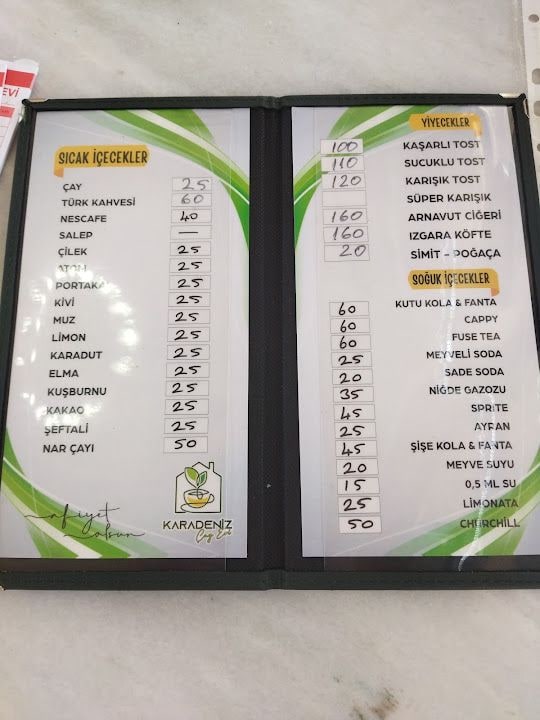 EVİ
SICAK İÇECEKLER
ÇAY 25
TÜRK KAHVESİ 60
NESCAFE 40
SALEP —
ÇİLEK 25
ATOM 25
PORTAKA 25
KİVİ 25
MUZ 25
LİMON 25
KARADUT 25
ELMA 25
KUŞBURNU 25
KAKAO 25
ŞEFTALİ 25
NAR ÇAYI 50
afiyet
olsun
KARADENİZ
Çay Evi
YİYECEKLER
100 KAŞARLI TOST
110 SUCUKLU TOST
120 KARIŞIK TOST
SÜPER KARIŞIK
160 ARNAVUT CİĞERİ
160 IZGARA KÖFTE
20 SİMİT – POĞAÇA
SOĞUK İÇECEKLER
60 KUTU KOLA & FANTA
60 CAPPY
60 FUSE TEA
25 MEYVELİ SODA
20 SADE SODA
35 NİĞDE GAZOZU
45 SPRİTE
25 AYRAN
45 ŞİŞE KOLA & FANTA
20 MEYVE SUYU
15 0,5 ML SU
25 LİMONATA
50 CHURCHILL